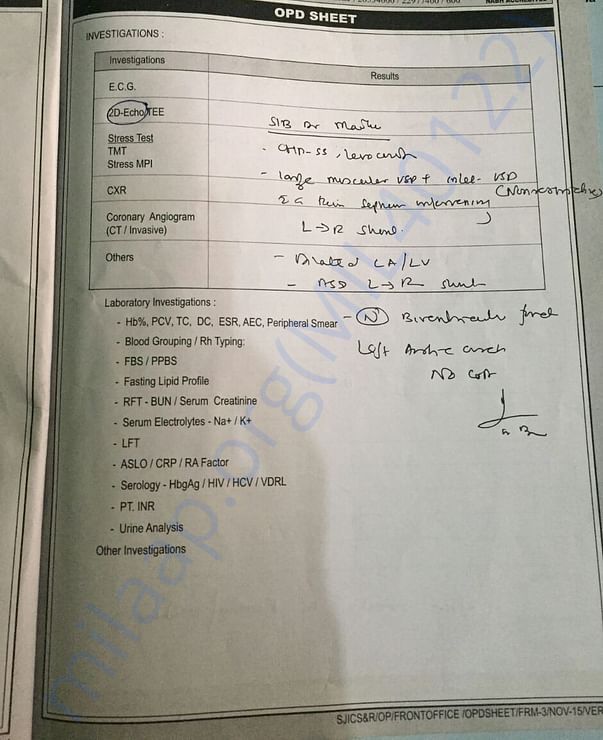 OPD SHEET
INVESTIGATIONS :
Investigations
Results
E.C.G.
2D-Echo/TEE
S/B Dr
Stress Test
TMT
- CHD-SS, Levocardia
Stress MPI
- large muscular VSD + inlet VSD
CXR
(Nonrestrictive)
thin septum intervening
Coronary Angiogram
(CT / Invasive)
L→R shunt.
Others
- Dilated LA/LV
- ASD L→R shunt
Laboratory Investigations :
- Hb%, PCV, TC, DC, ESR, AEC, Peripheral Smear
- (N) Biventricular
- Blood Grouping / Rh Typing:
Left Aortic arch
- FBS / PPBS
No CoA
- Fasting Lipid Profile
- RFT - BUN / Serum Creatinine
- Serum Electrolytes - Na+ / K+
- LFT
- ASLO / CRP / RA Factor
- Serology - HbgAg / HIV / HCV / VDRL
- PT. INR
- Urine Analysis
Other Investigations
SJICS&R/OP/FRONTOFFICE /OPDSHEET/FRM-3/NOV-15/VER